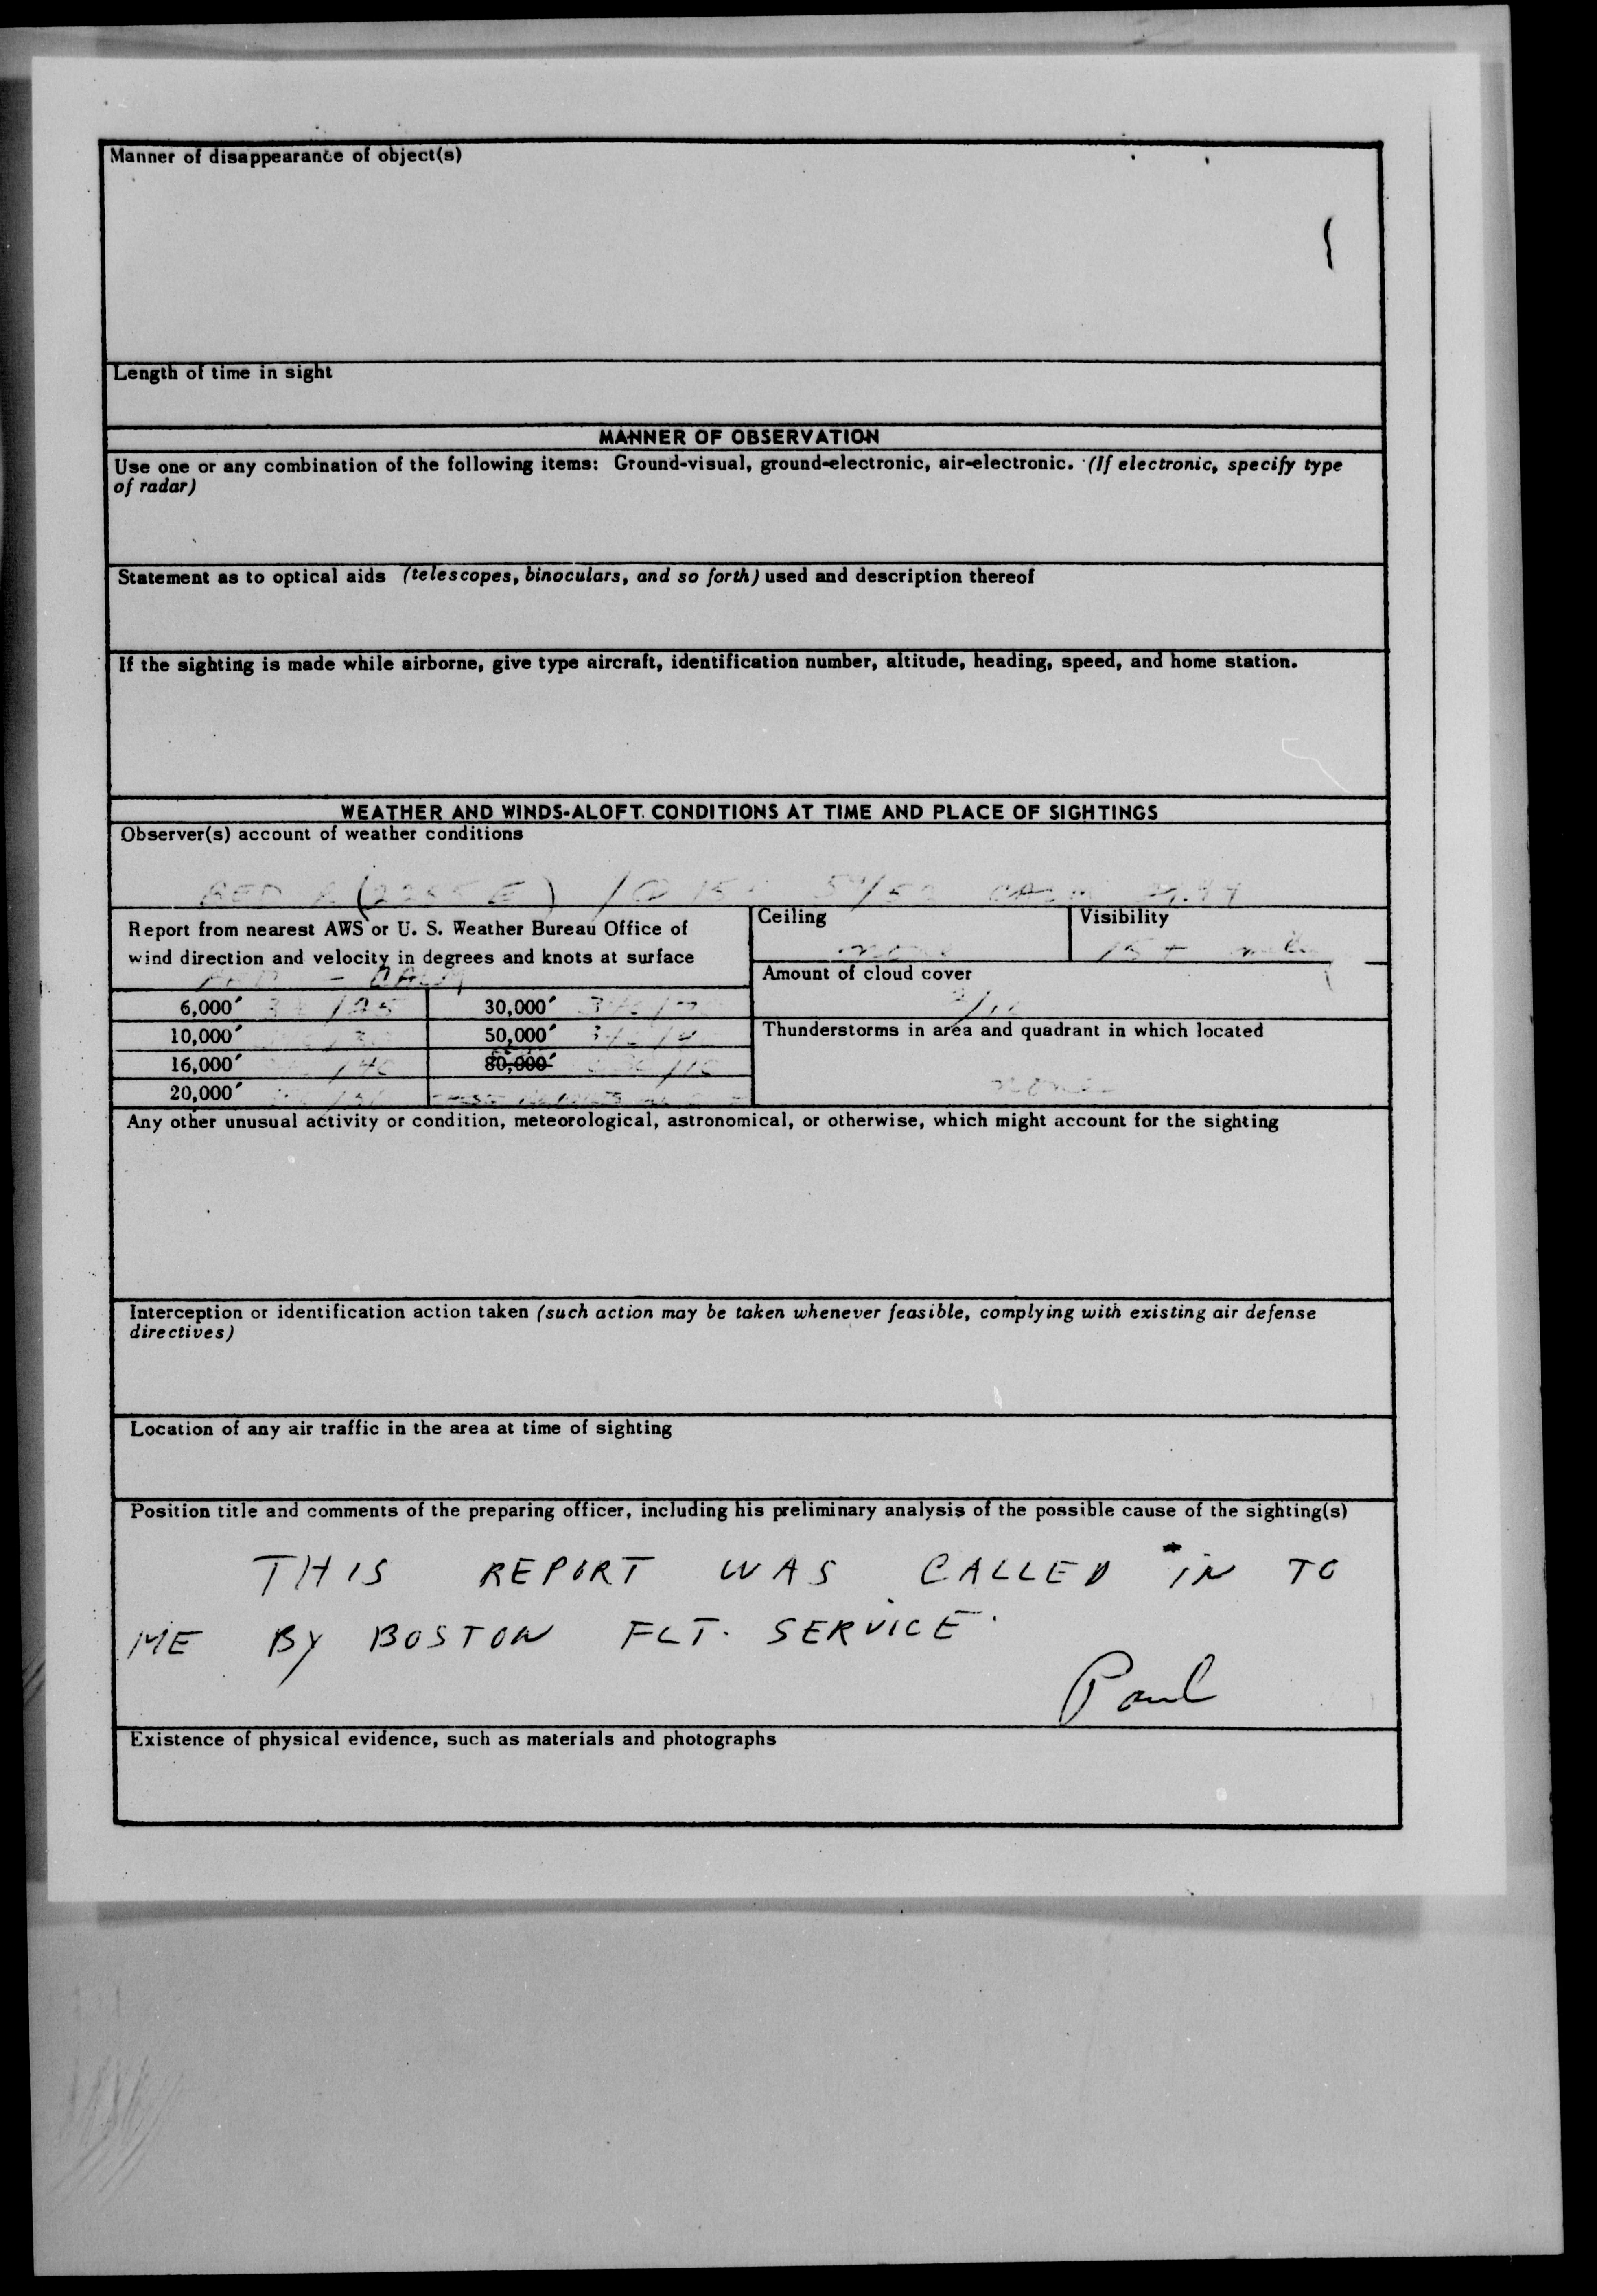 Manner of disappearance of object(s)
Length of time in sight
MANNER OF OBSERVATION
Use one or any combination of the following items: Ground-visual, ground-electronic, air-electronic. (If electronic, specify type
of radar)
Statement as to optical aids (telescopes, binoculars, and so forth) used and description thereof
If the sighting is made while airborne, give type aircraft, identification number, altitude, heading, speed, and home station.
WEATHER AND WINDS-ALOFT CONDITIONS AT TIME AND PLACE OF SIGHTINGS
Observer(s) account of weather conditions
Report from nearest AWS or U. S. Weather Bureau Office of
wind direction and velocity in degrees and knots at surface
CALM
Ceiling
none
Visibility
15+
Amount of cloud cover
6,000' 30,000'
10,000' 50,000'
16,000' 80,000'
20,000'
Thunderstorms in area and quadrant in which located
Any other unusual activity or condition, meteorological, astronomical, or otherwise, which might account for the sighting
Interception or identification action taken (such action may be taken whenever feasible, complying with existing air defense
directives)
Location of any air traffic in the area at time of sighting
Position title and comments of the preparing officer, including his preliminary analysis of the possible cause of the sighting(s)
THIS REPORT WAS CALLED IN TO
ME BY BOSTON FLT. SERVICE.
Paul
Existence of physical evidence, such as materials and photographs